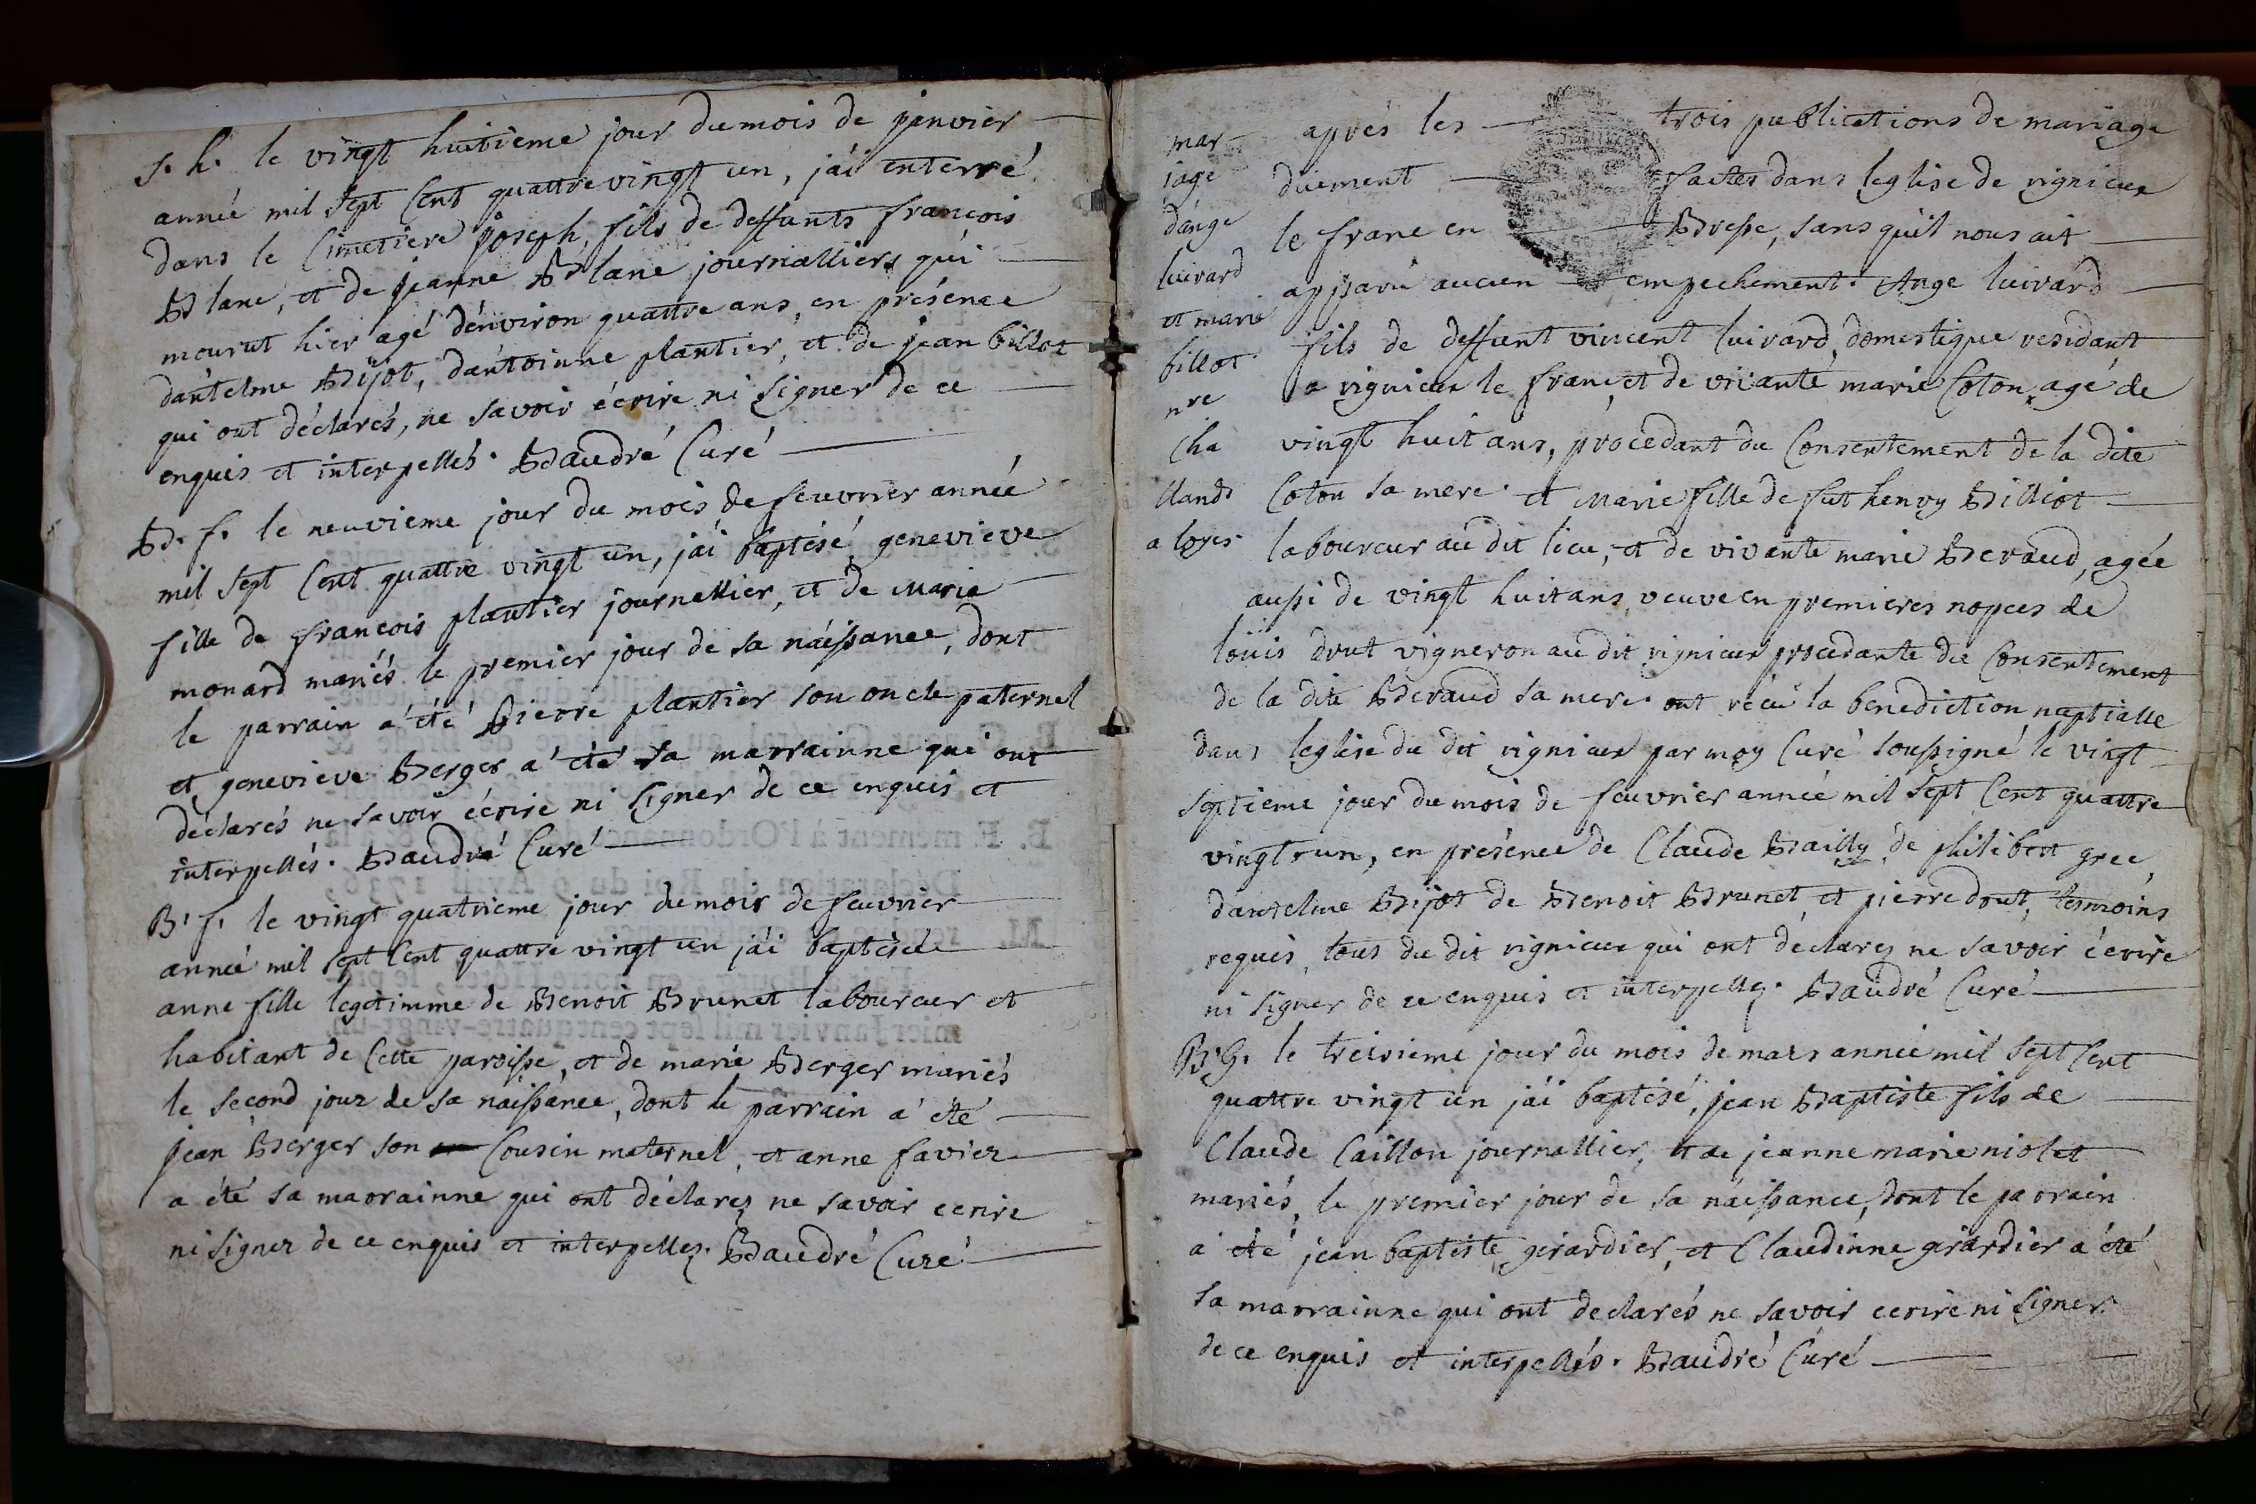 S. h. le vingt huitieme jour du mois de janvier
année mil sept cent quattre vingt un, j'ái enterré
dans le cimetiere joseph, fils de deffunts françois
Blanc, et de jeanne Blanc journalliers qui
mourut hier agé dénviron quattre ans, en présence
dántelme Bijot, dántoinne plantier, et de jean billot
qui ont déclarés, ne savoir écrire ni signer de ce
enquis et interpellés. Baudré Curé
B. f. le neuvieme jour du mois de feuvrier année
mil sept cent quattre vingt un, j'ái baptisé genevieve
fille de françois plantier journallier, et de Marie
monard mariés le premier jour de sa náissance, dont
le parrain a été pierre plantier son oncle paternel
et genevieve Berger a été sa marrainne qui ont
déclarés ne savoir écrire ni signer de ce enquis et
interpellés. Baudré Curé
B. f. le vingt quatrieme jour du mois de feuvrier
année mil sept cent quattre vingt un j'ái baptisée
anne fille legitimme de Benoit Brunet laboureur et
habitant de cette paroisse, et de marie Berger mariés
le second jour de sa náissance, dont le parrain a été
jean Berger son cousin maternel, et anne favier
a été sa marrainne qui ont déclarez ne savoir ecrire
ni signer de ce enquis et interpellez. Baudré Curé
mar
iage
dánge
luivard
et marie
billot
nre
cha
llands
a loyes
aprés les trois publications de mariage
duement faites dans léglise de rignieux
le franc en Bresse, sans qu'il nous ait
apparu aucun empechement. Ange luivard
fils de deffunt vincent luivard, domestique residant
a rignieux le franc, et de vivante marie Coton, agé de
vingt huit ans, procedant du consentement de la dite
Coton sa mere. et Marie fille de fut henry Billiot
laboureur au dit lieu, et de vivante marie Beraud, agée
aussi de vingt huit ans, veuve en premieres nopces de
louis drut vigneron au dit rignieux procedante du consentement
de la dite Beraud sa mere. ont récu la benediction nuptialle
dans leglise du dit rignieux par moy curé soussigné le vingt
septieme jour du mois de feuvrier année mil sept cent quattre
vingt un, en présence de Claude Bailly, de philibert grec,
dantelme Bijot de Benoit Brunet, et pierre drut, tesmoins
requis, tous du dit rignieux qui ont déclarez ne savoir écrire
ni signer de ce enquis et interpellez. Baudré Curé
B. G. le treisieme jour du mois de mars année mil sept cent
quattre vingt un j'ái baptisé, jean Baptiste fils de
Claude Caillon journallier, et de jeanne marie niolet
mariés, le premier jour de sa náissance, dont le parrain
a été jean baptiste girardier, et Claudinne girardier a été
sa marrainne qui ont déclarés ne savoir ecrire ni signer
de ce enquis et interpellés. Baudré Curé